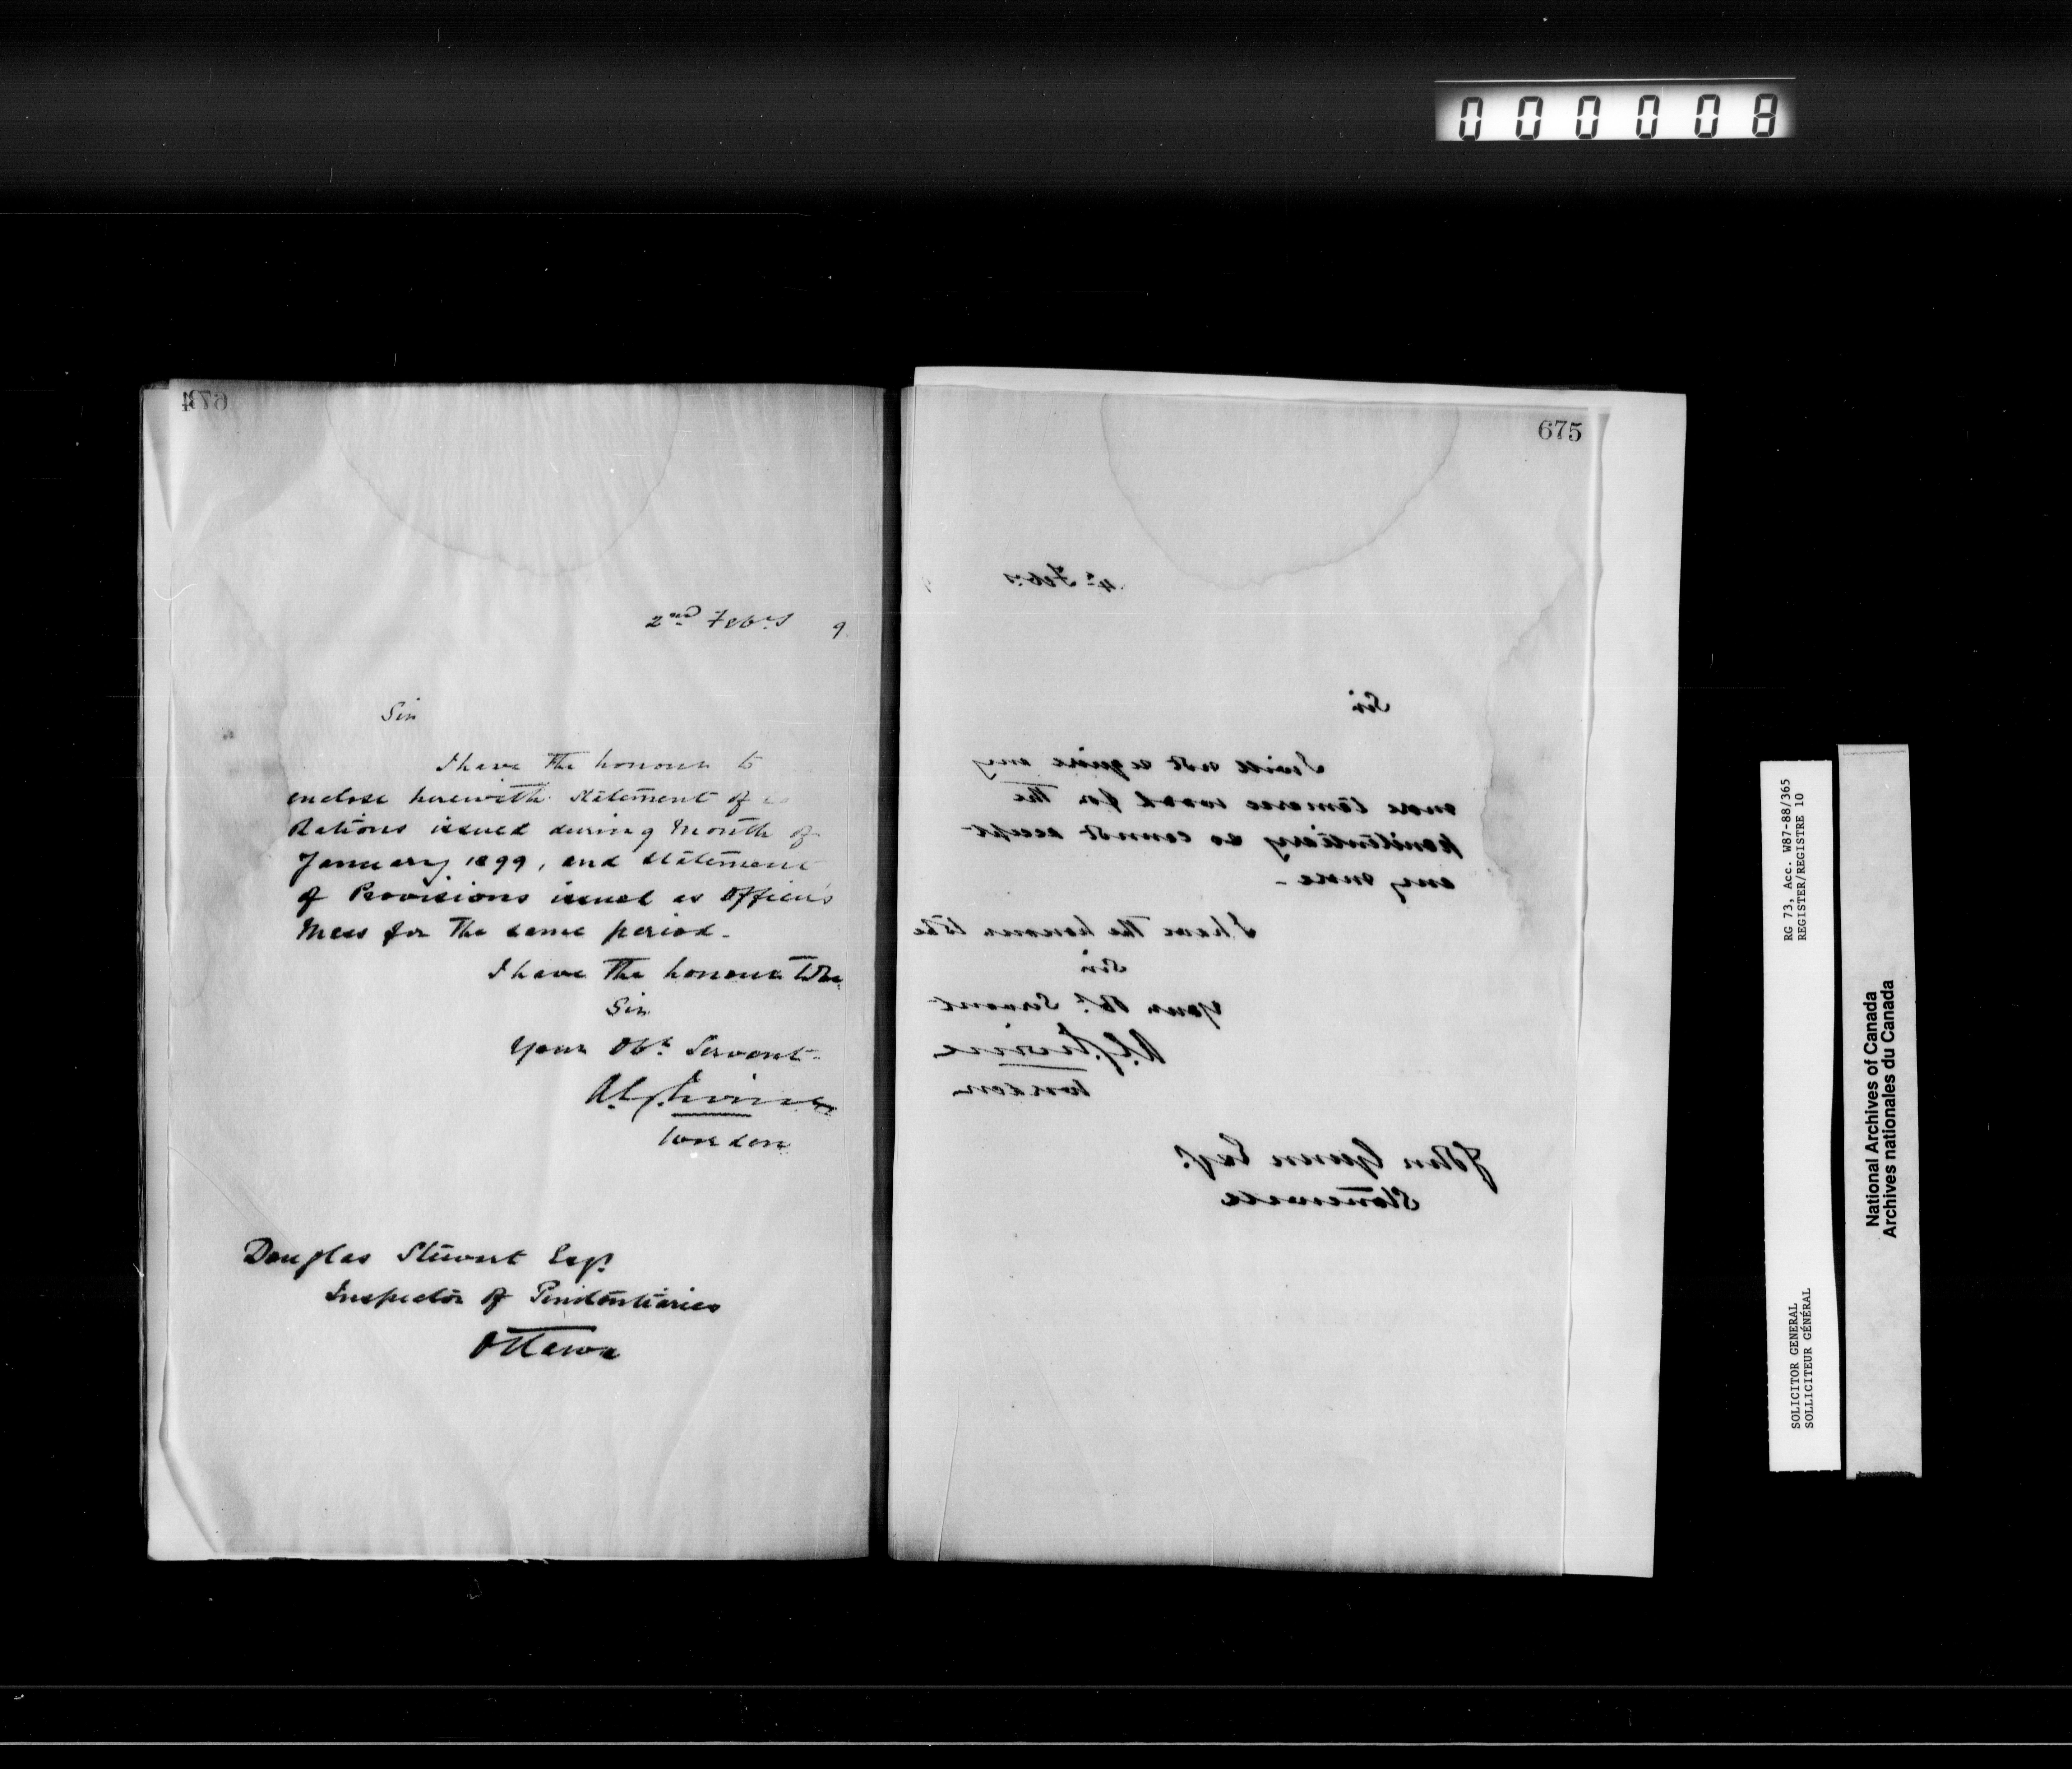 000008
2nd Feby 9
Sir
I have the honour to
enclose herewith statement of
Rations issued during Month of
January 1899, and statement
of Provisions issued as Officers
Mess for the same period.
I have the honour to be
Sir
Your Obt. Servant
A.G. Irvine
Warden
Douglas Stewart Esq.
Inspector of Penitentiaries
Ottawa
675
4th Feby 9
Sir
I will not require any
more tamarac wood for the
penitentiary so cannot accept
any more -
I have the honour to be
Sir
Your Obt. Servant
A.G. Irvine
Warden
John Gunn Esq.
Stonewall
RG 73, Acc. W87-88/365
REGISTER/REGISTRE 10
SOLICITOR GENERAL
SOLLICITEUR GÉNÉRAL
National Archives of Canada
Archives nationales du Canada